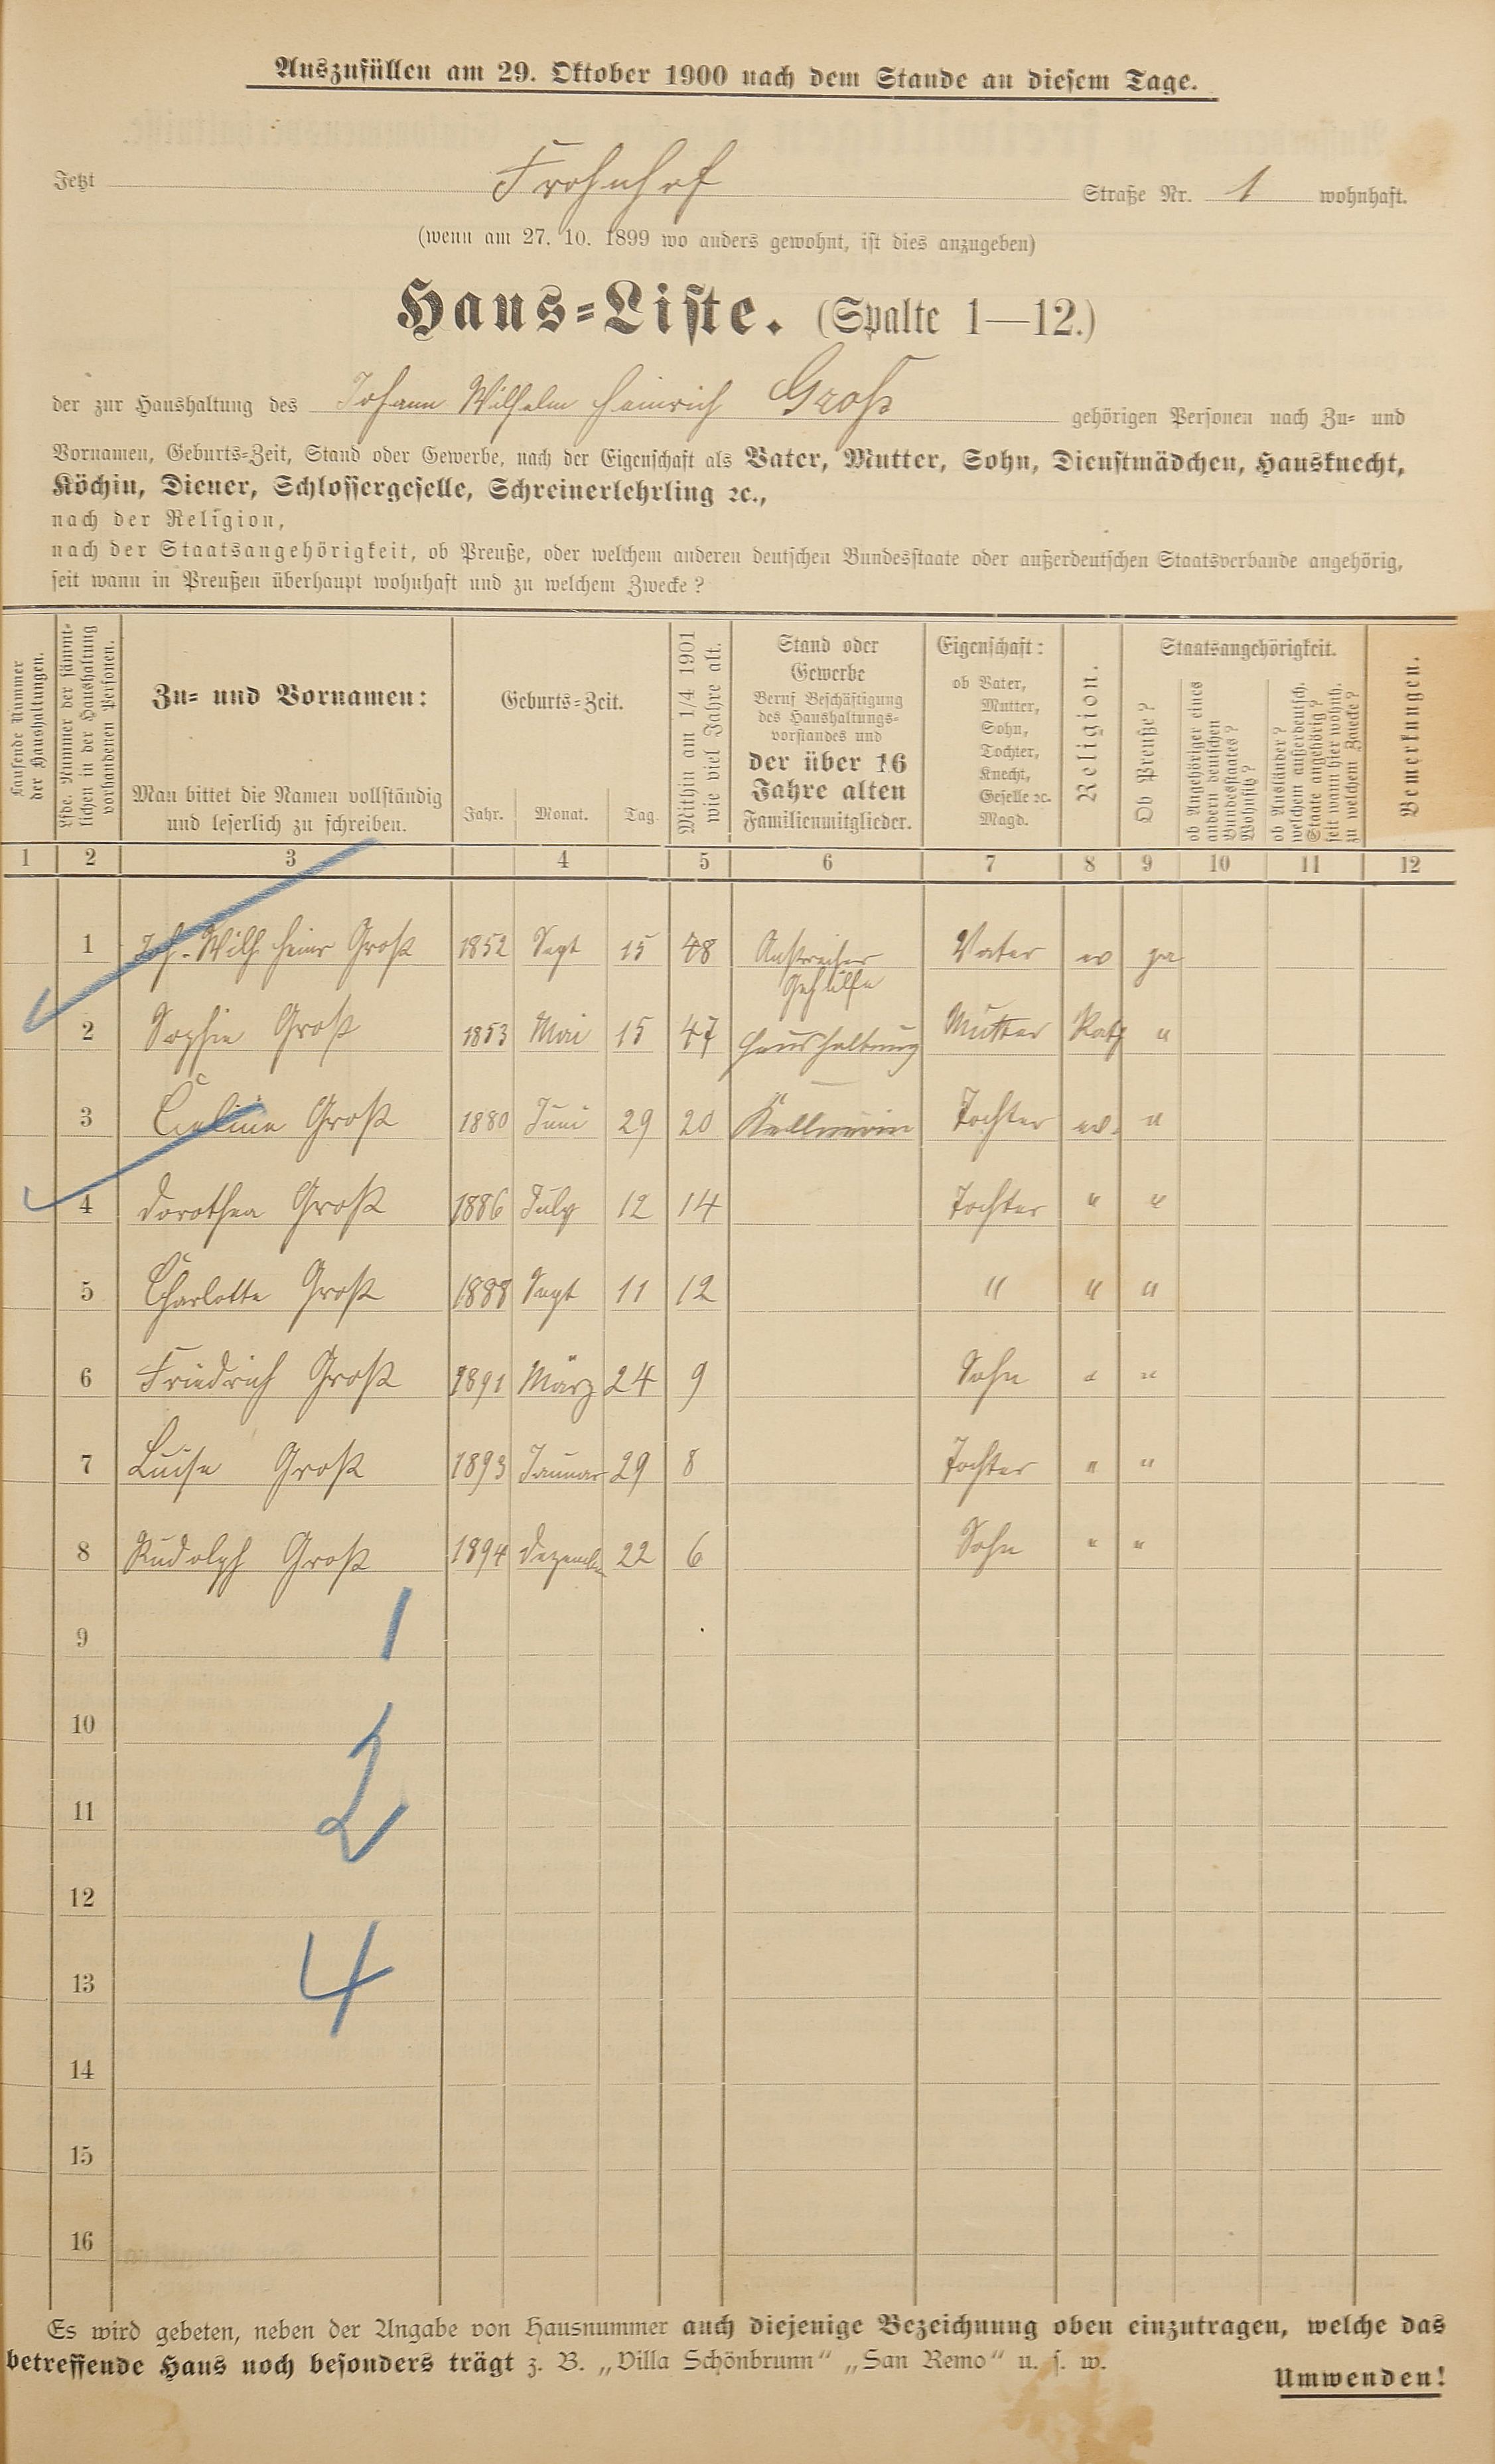 Auszufüllen am 29. Oktober 1900 nach dem Stande an diesem Tage.
Jetzt Frohnhof Straße Nr. 1 wohnhaft.
(wenn am 27. 10. 1899 wo anders gewohnt, ist dies anzugeben)
Haus=Liste. (Spalte 1—12.)
der zur Haushaltung des Johann Wilhelm Heinrich Groß gehörigen Personen nach Zu= und
Vornamen, Geburts=Zeit, Stand oder Gewerbe, nach der Eigenschaft als Vater, Mutter, Sohn, Dienstmädchen, Hausknecht,
Köchin, Diener, Schlossergeselle, Schreinerlehrling ꝛc.,
nach der Religion,
nach der Staatsangehörigkeit, ob Preuße, oder welchem anderen deutschen Bundesstaate oder außerdeutschen Staatsverbande angehörig,
seit wann in Preußen überhaupt wohnhaft und zu welchem Zwecke?
Laufende Nummer
der Haushaltungen.
Lfde. Nummer der sämmt=
lichen in der Haushaltung
vorhandenen Personen.
Zu= und Vornamen:
Man bittet die Namen vollständig
und leserlich zu schreiben.
Geburts=Zeit.
Jahr. Monat. Tag.
Mithin am 1/4 1901
wie viel Jahre alt.
Stand oder
Gewerbe
Beruf Beschäftigung
des Haushaltungs=
vorstandes und
der über 16
Jahre alten
Familienmitglieder.
Eigenschaft:
ob Vater,
Mutter,
Sohn,
Tochter,
Knecht,
Geselle ꝛc.
Magd.
Religion.
Staatsangehörigkeit.
Ob Preuße?
ob Angehöriger eines
andern deutschen
Bundesstaates?
Wohnsitz?
ob Ausländer?
welchem außerdeutsch.
Staate angehörig?
seit wann hier wohnh.
zu welchem Zwecke?
Bemerkungen.
1 2 3 4 5 6 7 8 9 10 11 12
1 Joh. Wilh Heinr Groß 1852 Sept 15 48 Anstreicher Gehülfe Vater ev ja
2 Sophie Groß 1853 Mai 15 47 Haushaltung Mutter Kath "
3 Groß 1880 Juni 29 20 Kellnerin Tochter ev. "
4 Dorothea Groß 1886 July 12 14 Tochter " "
5 Charlotte Groß 1888 Sept 11 12 " " "
6 Friedrich Groß 1891 März 24 9 Sohn " "
7 Luise Groß 1893 Januar 29 8 Tochter " "
8 Rudolph Groß 1894 Dezember 22 6 Sohn " "
9 1
10
2
11
12
13 4
14
15
16
Es wird gebeten, neben der Angabe von Hausnummer auch diejenige Bezeichnung oben einzutragen, welche das
betreffende Haus noch besonders trägt z. B. „Villa Schönbrunn“ „San Remo“ u. s. w.
Umwenden!